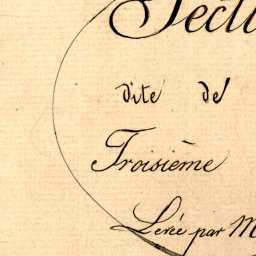 Secti
dite de
Troisième
Levée par M